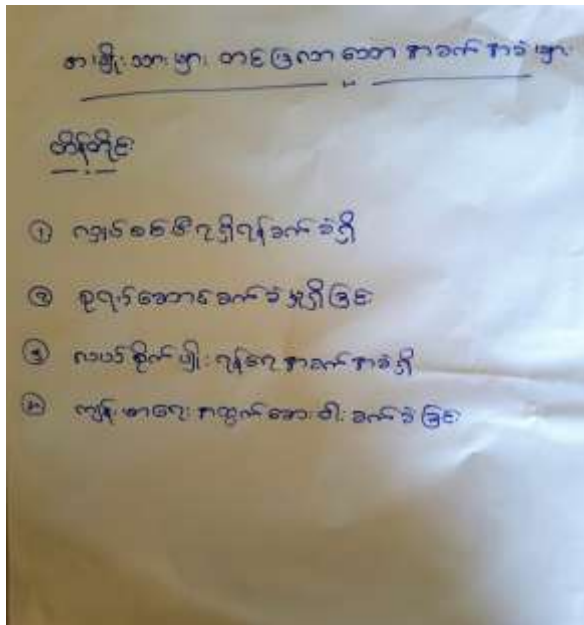 အမျိုးသားများ တင်ပြလာသော အခက်အခဲများ
တိန်တိုင်း
① လျှပ်စစ်မီးရရှိရန်ခက်ခဲ၍
② စုရပ်ဆောင်ခက်ခဲမှုရှိခြင်း
③ လယ်စိုက်ပျိုးရန်ရေအခက်အခဲရှိ
④ ကျန်းမာရေးအတွက်ဆေးဝါးခက်ခဲခြင်း